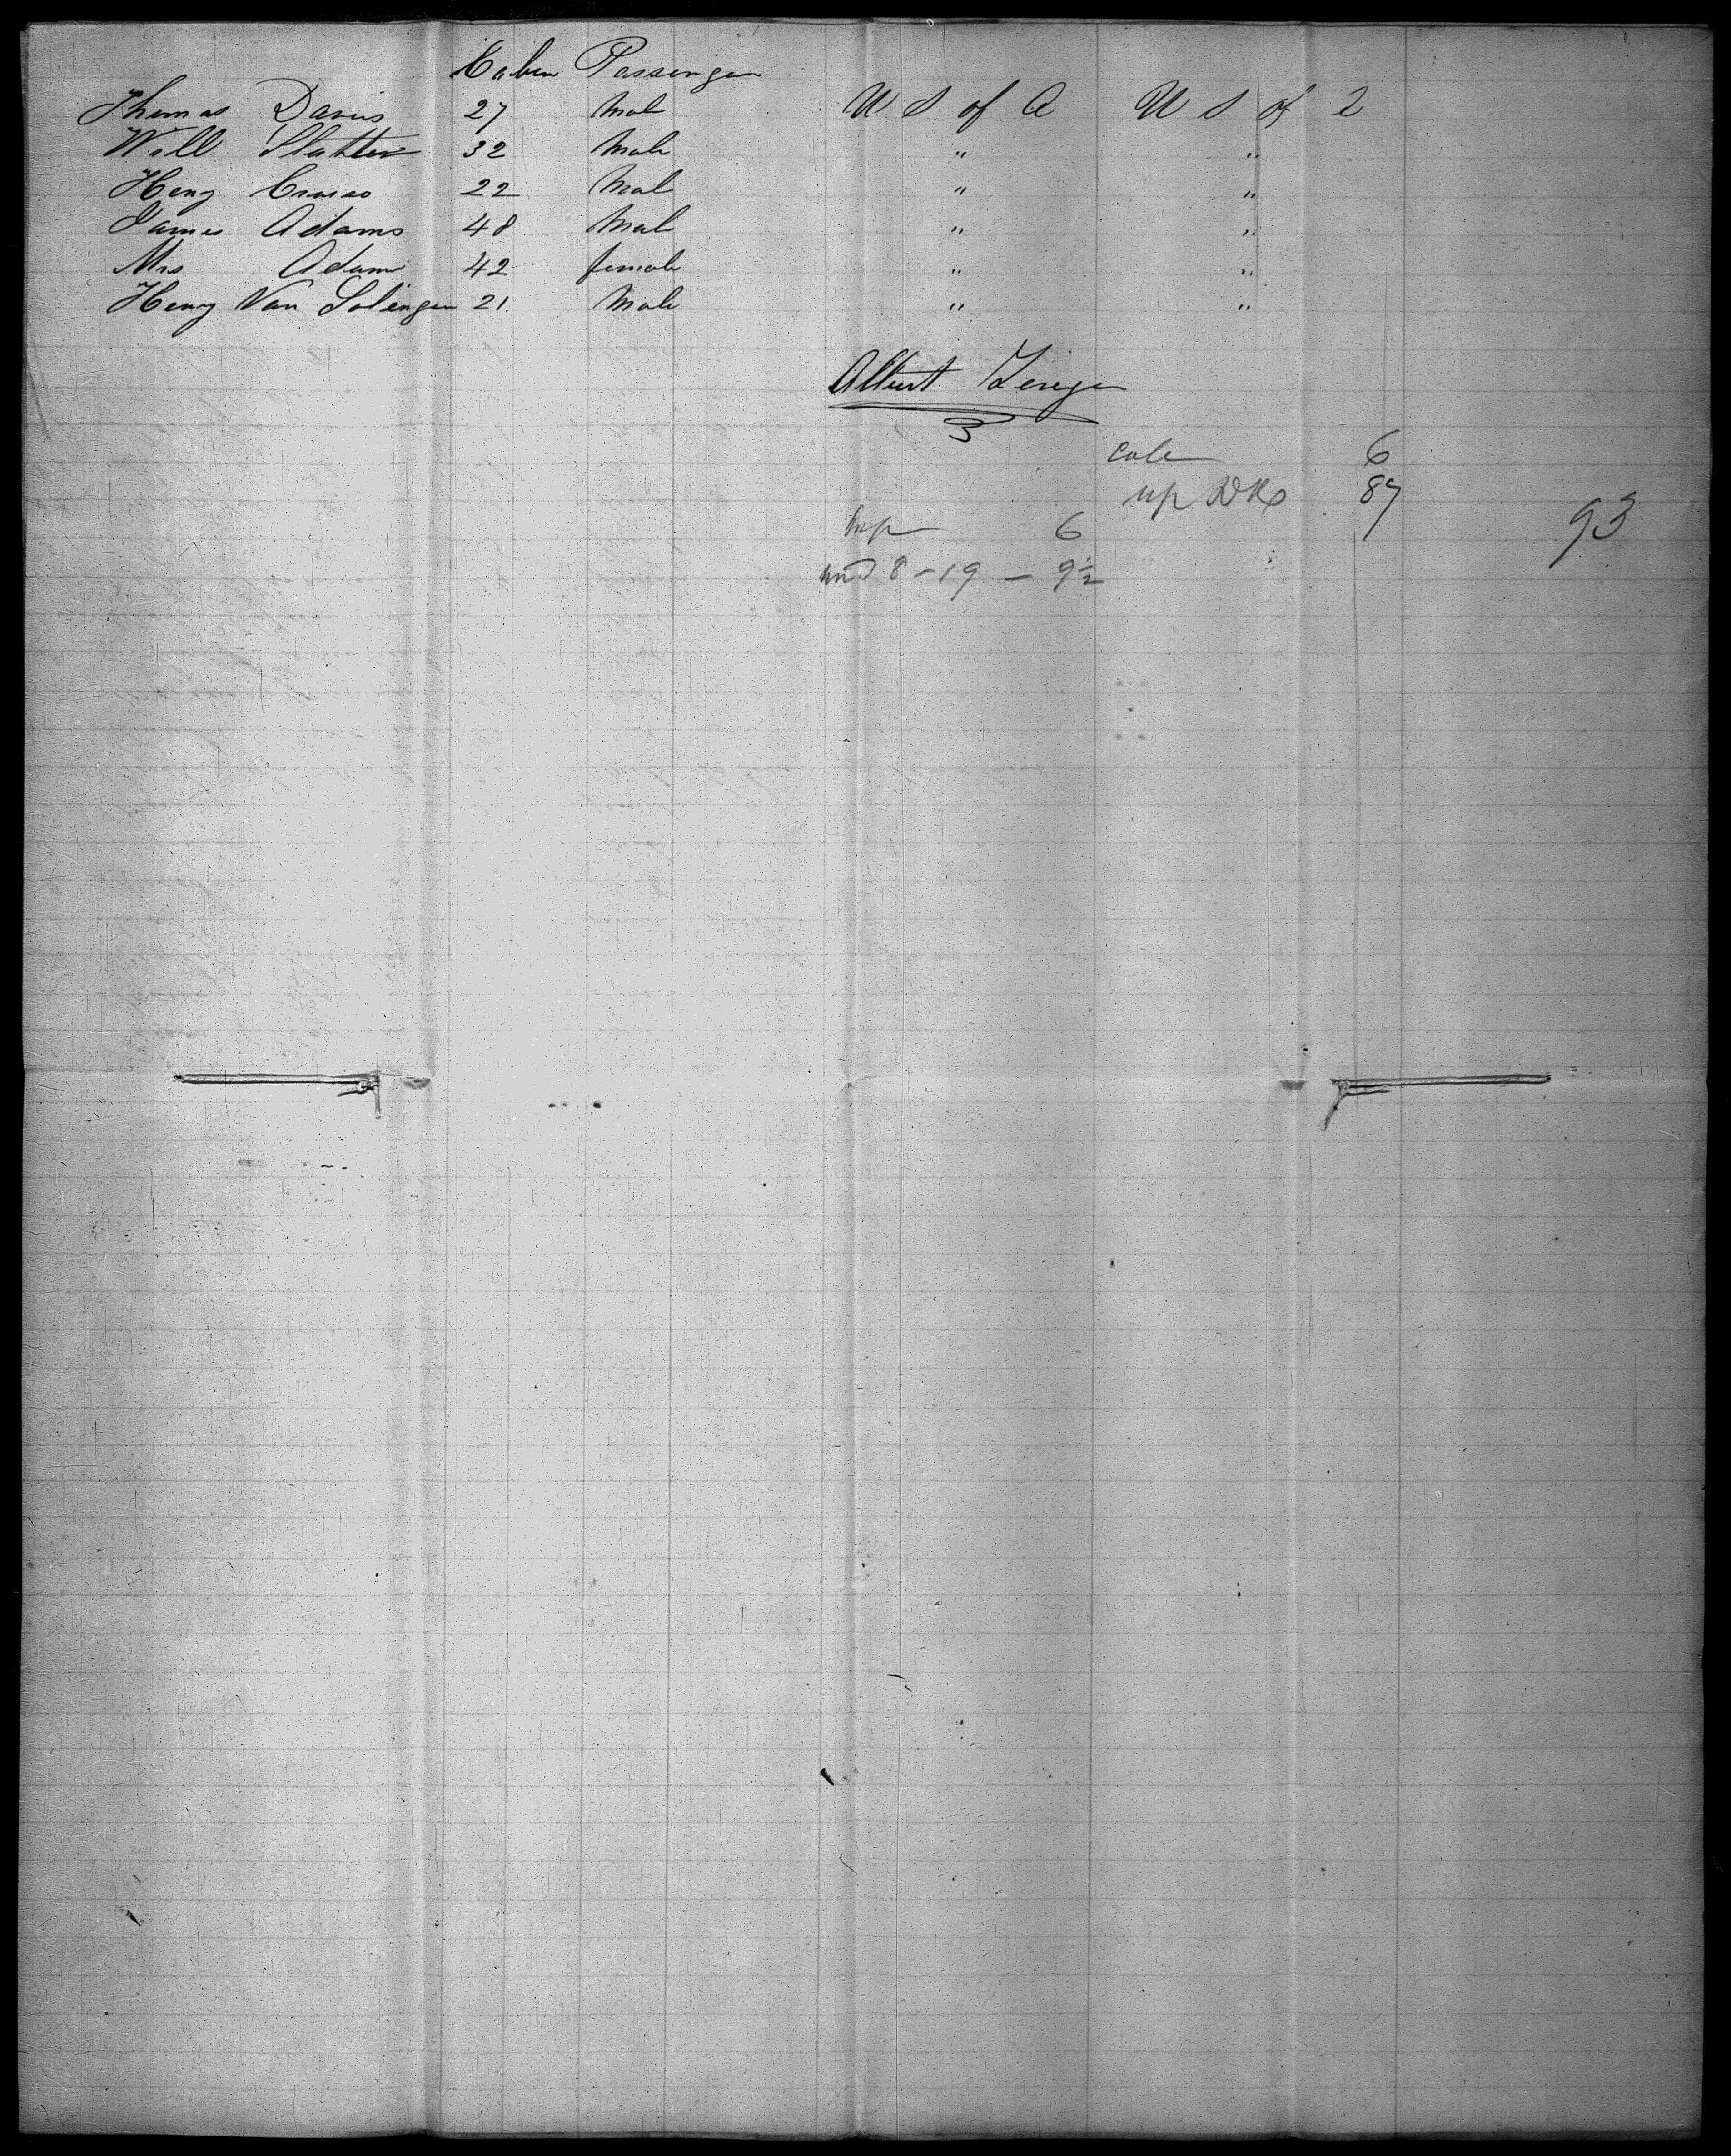 Cabin Passenger
Thomas Davis 27 Male U S of A U S of A
Will Slatter 32 Male " "
Heny 22 Male " "
James Adams 48 Male " "
Mrs Adams 42 female " "
Heny Van Solingen 21 Male " "
Albert Zerega
6
up 87
93
6
8 - 19 - 9½